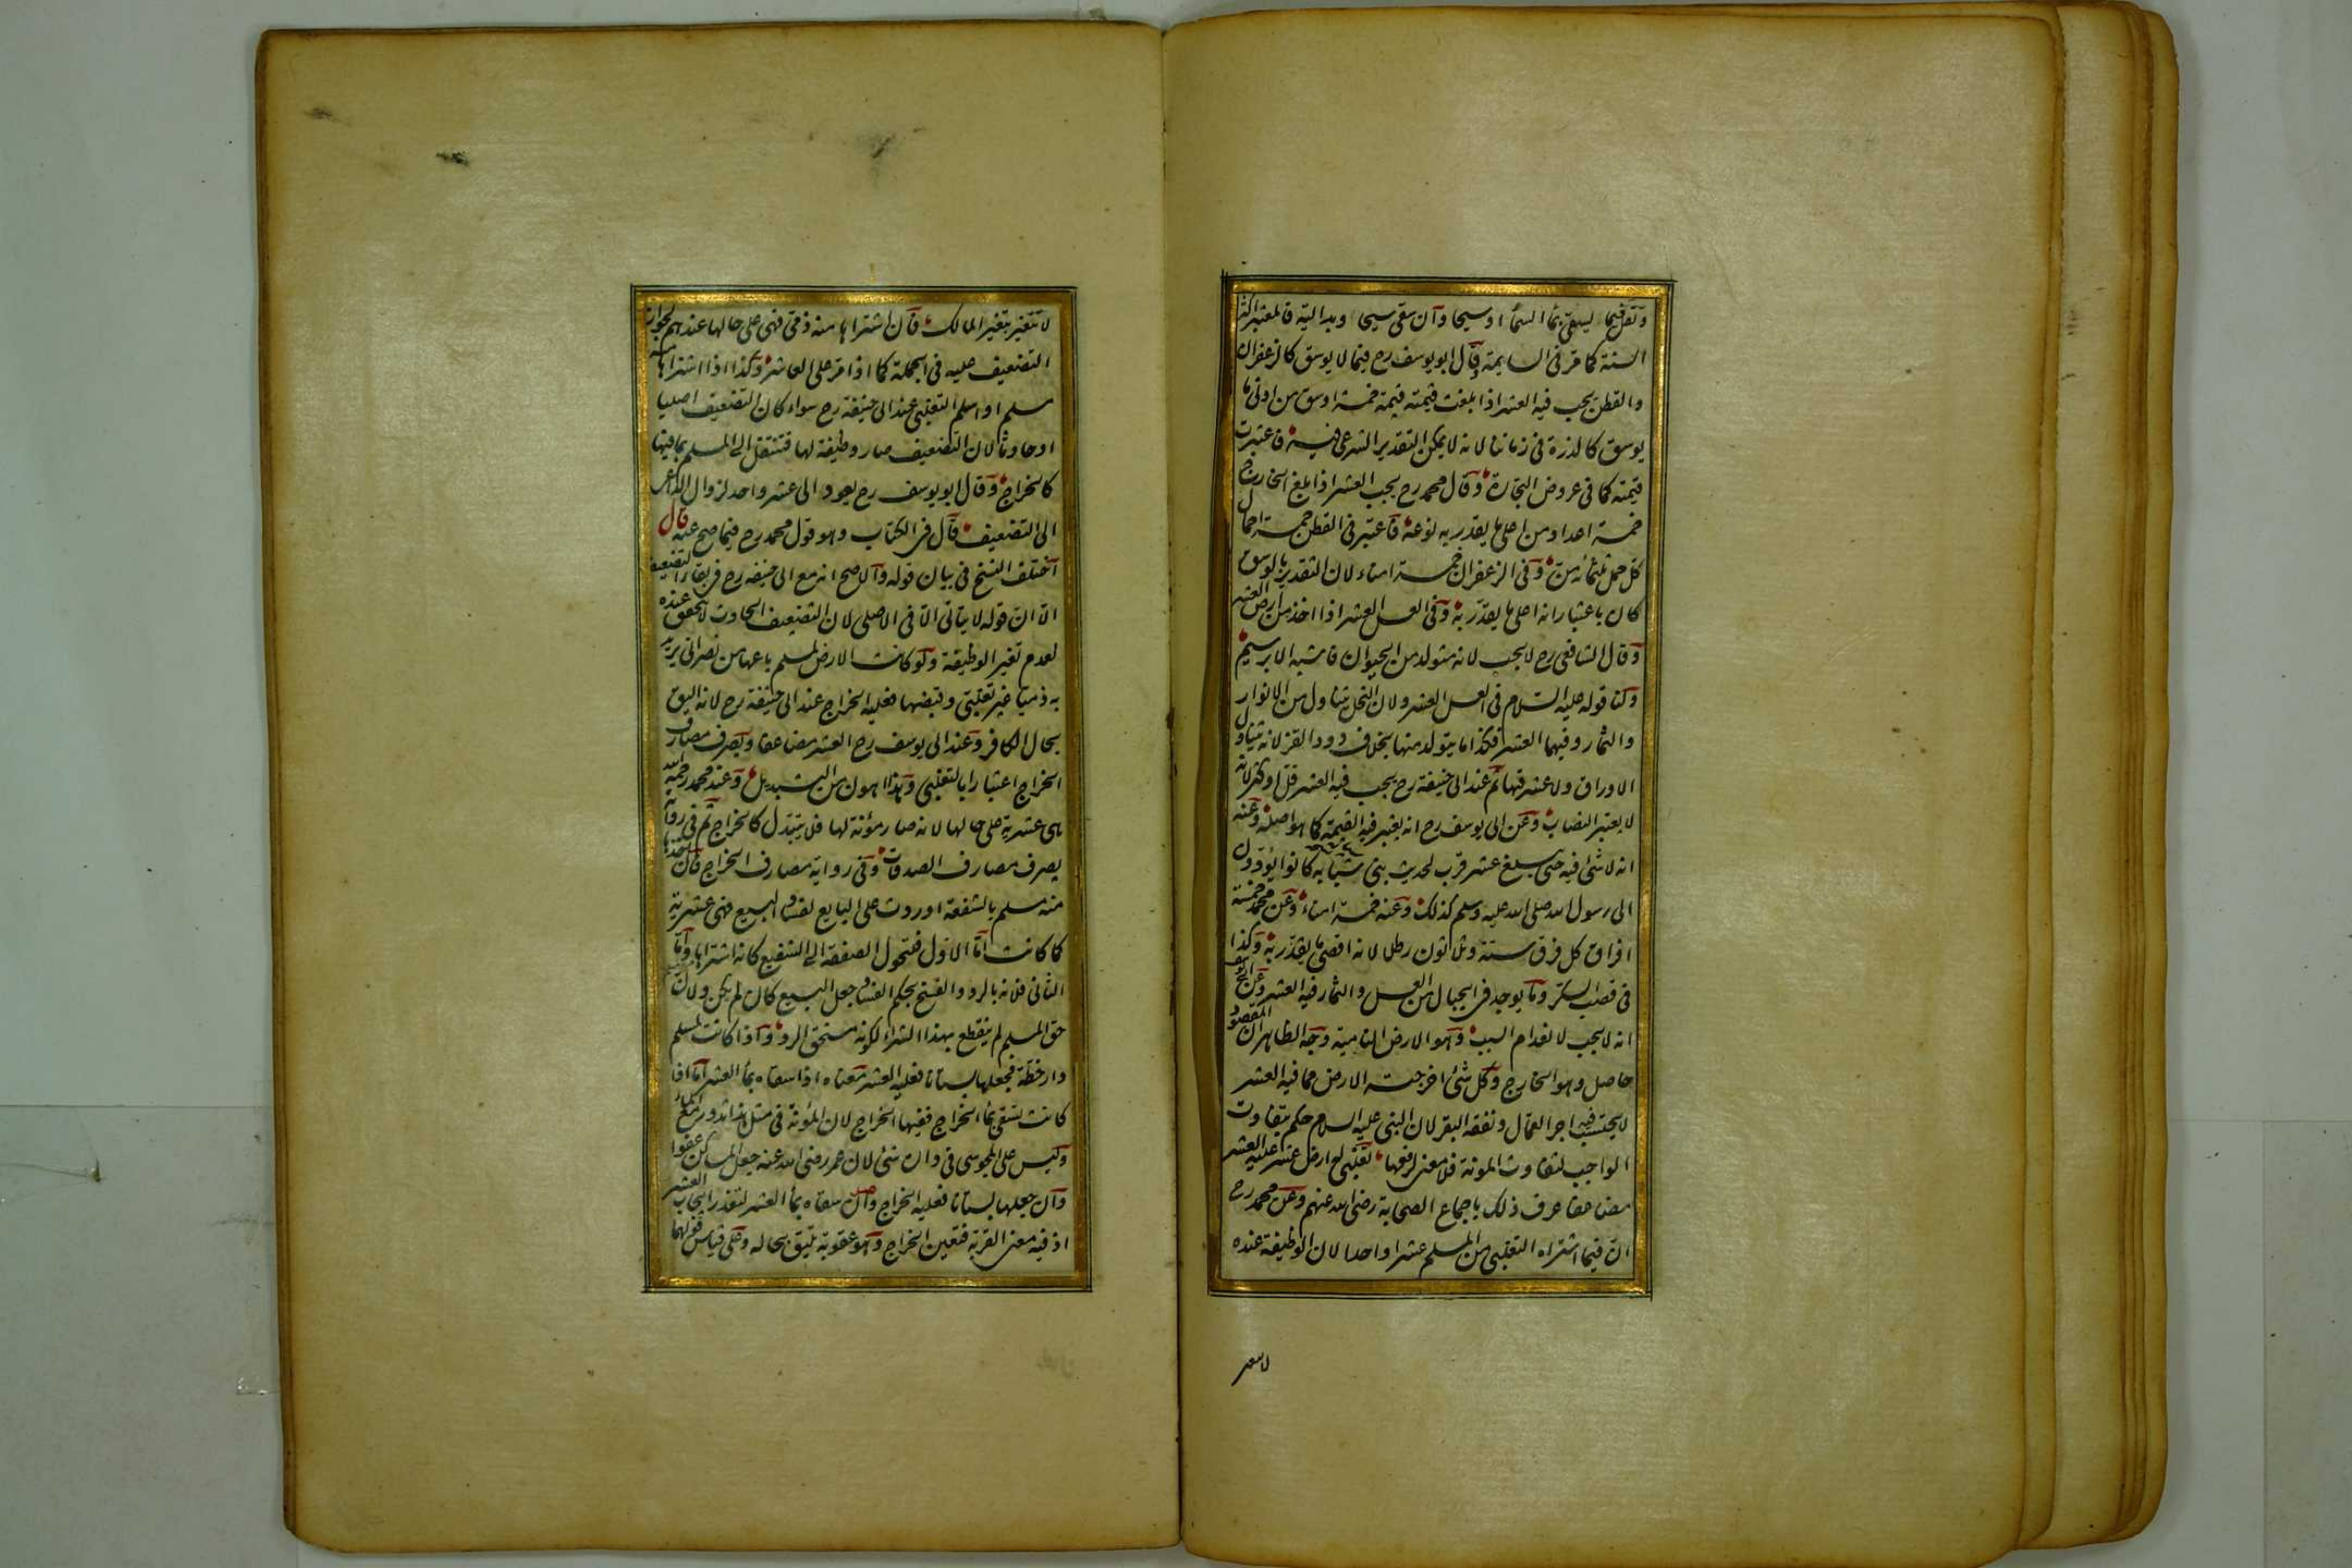 وتقل فيما يسقى بماء السماء او سيحا وان سقى سيحا وبدالية فالمعتبر اكثر
السنة كما مر فى السايمة وقال ابو يوسف رح فيما لا يوسق كالزعفران
والقطن يجب فيه العشر اذا بلغت قيمته قيمة خمسة اوسق من ادنى ما
يوسق كالذرة فى زماننا لانه لا يمكن التقدير الشرعى فيه فاعتبرت
قيمته كما فى عروض التجارة وقال محمد رح يجب العشر اذا بلغ الخارج
خمسة اعداد من اعلى ما يقدر به نوعه فاعتبر فى القطن خمسة احمال
كل حمل ثلثمائة من وفى الزعفران خمسة امناء لان التقدير بالوسق
كان باعتبار انه اعلى ما يقدر به وفى العسل العشر اذا اخذ من ارض العشر
وقال الشافعى رح لا يجب لانه متولد من الحيوان فاشبه الابريسم
ولنا قوله عليه السلام فى العسل العشر ولان النحل يتناول من الانوار
والثمار وفيهما العشر فكذا ما يتولد منها بخلاف دود القز لانه يتناول
الاوراق ولا عشر فيها ثم عند ابى حنيفة رح يجب فيه العشر قل او كثر لانه
لا يعتبر النصاب وعن ابى يوسف رح انه يعتبر فيه القيمة كما هو اصله وعنه
انه لا شئ فيه حتى يبلغ عشر قرب لحديث بنى شبابه كانوا يؤدون
الى رسول الله صلى الله عليه وسلم كذلك وعنه خمسة امناء وعن محمد خمسة
افراق كل فرق ستة وثلاثون رطلا لانه اقصى ما يقدر به وكذا
فى قصب السكر وما يوجد فى الجبال من العسل والثمار فيه العشر وعن ابى يوسف
انه لا يجب لانعدام السبب وهو الارض النامية وجه الظاهر ان المقصود
حاصل وهو الخارج وكل شئ اخرجته الارض مما فيه العشر
لا يحتسب فيه اجر العمال ونفقة البقر لان النبى عليه السلام حكم بتفاوت
الواجب لتفاوت المونة فلا معنى لرفعها تغلبى له ارض عشر عليه العشر
مضاعفا عرف ذلك باجماع الصحابة رضى الله عنهم وعن محمد رح
ان فيما اشتراه التغلبى من المسلم عشرا واحدا لان الوظيفة عنده
لا تتغير
لا تتغير بتغير المالك فان اشتراها منه ذمى فهى على حالها عندهم لجواز
التضعيف عليه فى الجملة كما اذا مر على العاشر وكذا اذا اشتراها منه
مسلم او اسلم التغلبى عند ابى حنيفة رح سواء كان التضعيف اصليا
او حادثا لان التضعيف صار وظيفة لها فتنتقل الى المسلم بما فيها
كالخراج وقال ابو يوسف رح يعود الى عشر واحد لزوال الداعى
الى التضعيف قال فى الكتاب وهو قول محمد رح فيما صح عنه قال
اختلف النسخ فى بيان قوله والاصح انه مع ابى حنيفه رح فى بقاء التضعيف
الا ان قوله لا يتاتى الا فى الاصلى لان التضعيف الحادث لا يتحقق عنده
لعدم تغير الوظيفة ولو كانت الارض لمسلم باعها من نصرانى يريد
به ذميا غير تغلبى وقبضها فعليه الخراج عند ابى حنيفة رح لانه اليق
بحال الكافر وعند ابى يوسف رح العشر مضاعفا ويصرف مصارف
الخراج اعتبارا بالتغلبى وهذا اهون من التبديل وعند محمد رحمه الله
هى عشرية على حالها لانه صار مؤنة لها فلا يتبدل كالخراج ثم فى رواية
يصرف مصارف الصدقات وفى رواية مصارف الخراج فان اخذها
منه مسلم بالشفعة او ردت على البايع لفساد البيع فهى عشرية
كما كانت اما الاول فلتحول الصفقة الى الشفيع كانه اشتراها واما
الثانى فلانه بالرد والفسخ بحكم الفساد جعل البيع كان لم يكن ولان
حق المسلم لم ينقطع بهذا الشراء لكونه مستحق الرد واذا كانت لمسلم
دار خطة فجعلها بستانا فعليه العشر معناه اذا سقاه بماء العشر اما اذا
كانت تسقى بماء الخراج ففيها الخراج لان المؤنة فى مثل هذا تدور مع الماء
وليس على المجوسى فى داره شئ لان عمر رضى الله عنه جعل المساكن عفوا
وان جعلها بستانا فعليه الخراج وان سقاه بماء العشر لتعذر ايجاب العشر
اذ فيه معنى القربة فتعين الخراج وهو عقوبة تليق بحاله وعلى قياس قولهما